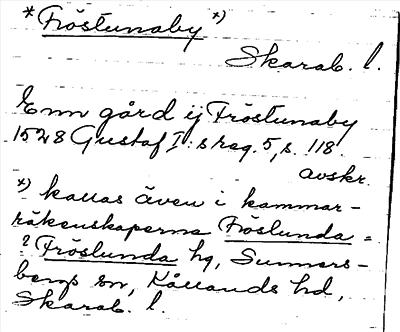 * Fröstunaby *)
Skarab. l.
Enn gård ij Fröstunaby
1528 Gustaf I:s reg. 5, s. 118.
avskr.
*) kallas även i kammar-
räkenskaperna Fröslunda =
? Fröslunda hg, Sunners-
bergs sn, Kållands hd,
Skarab. l.